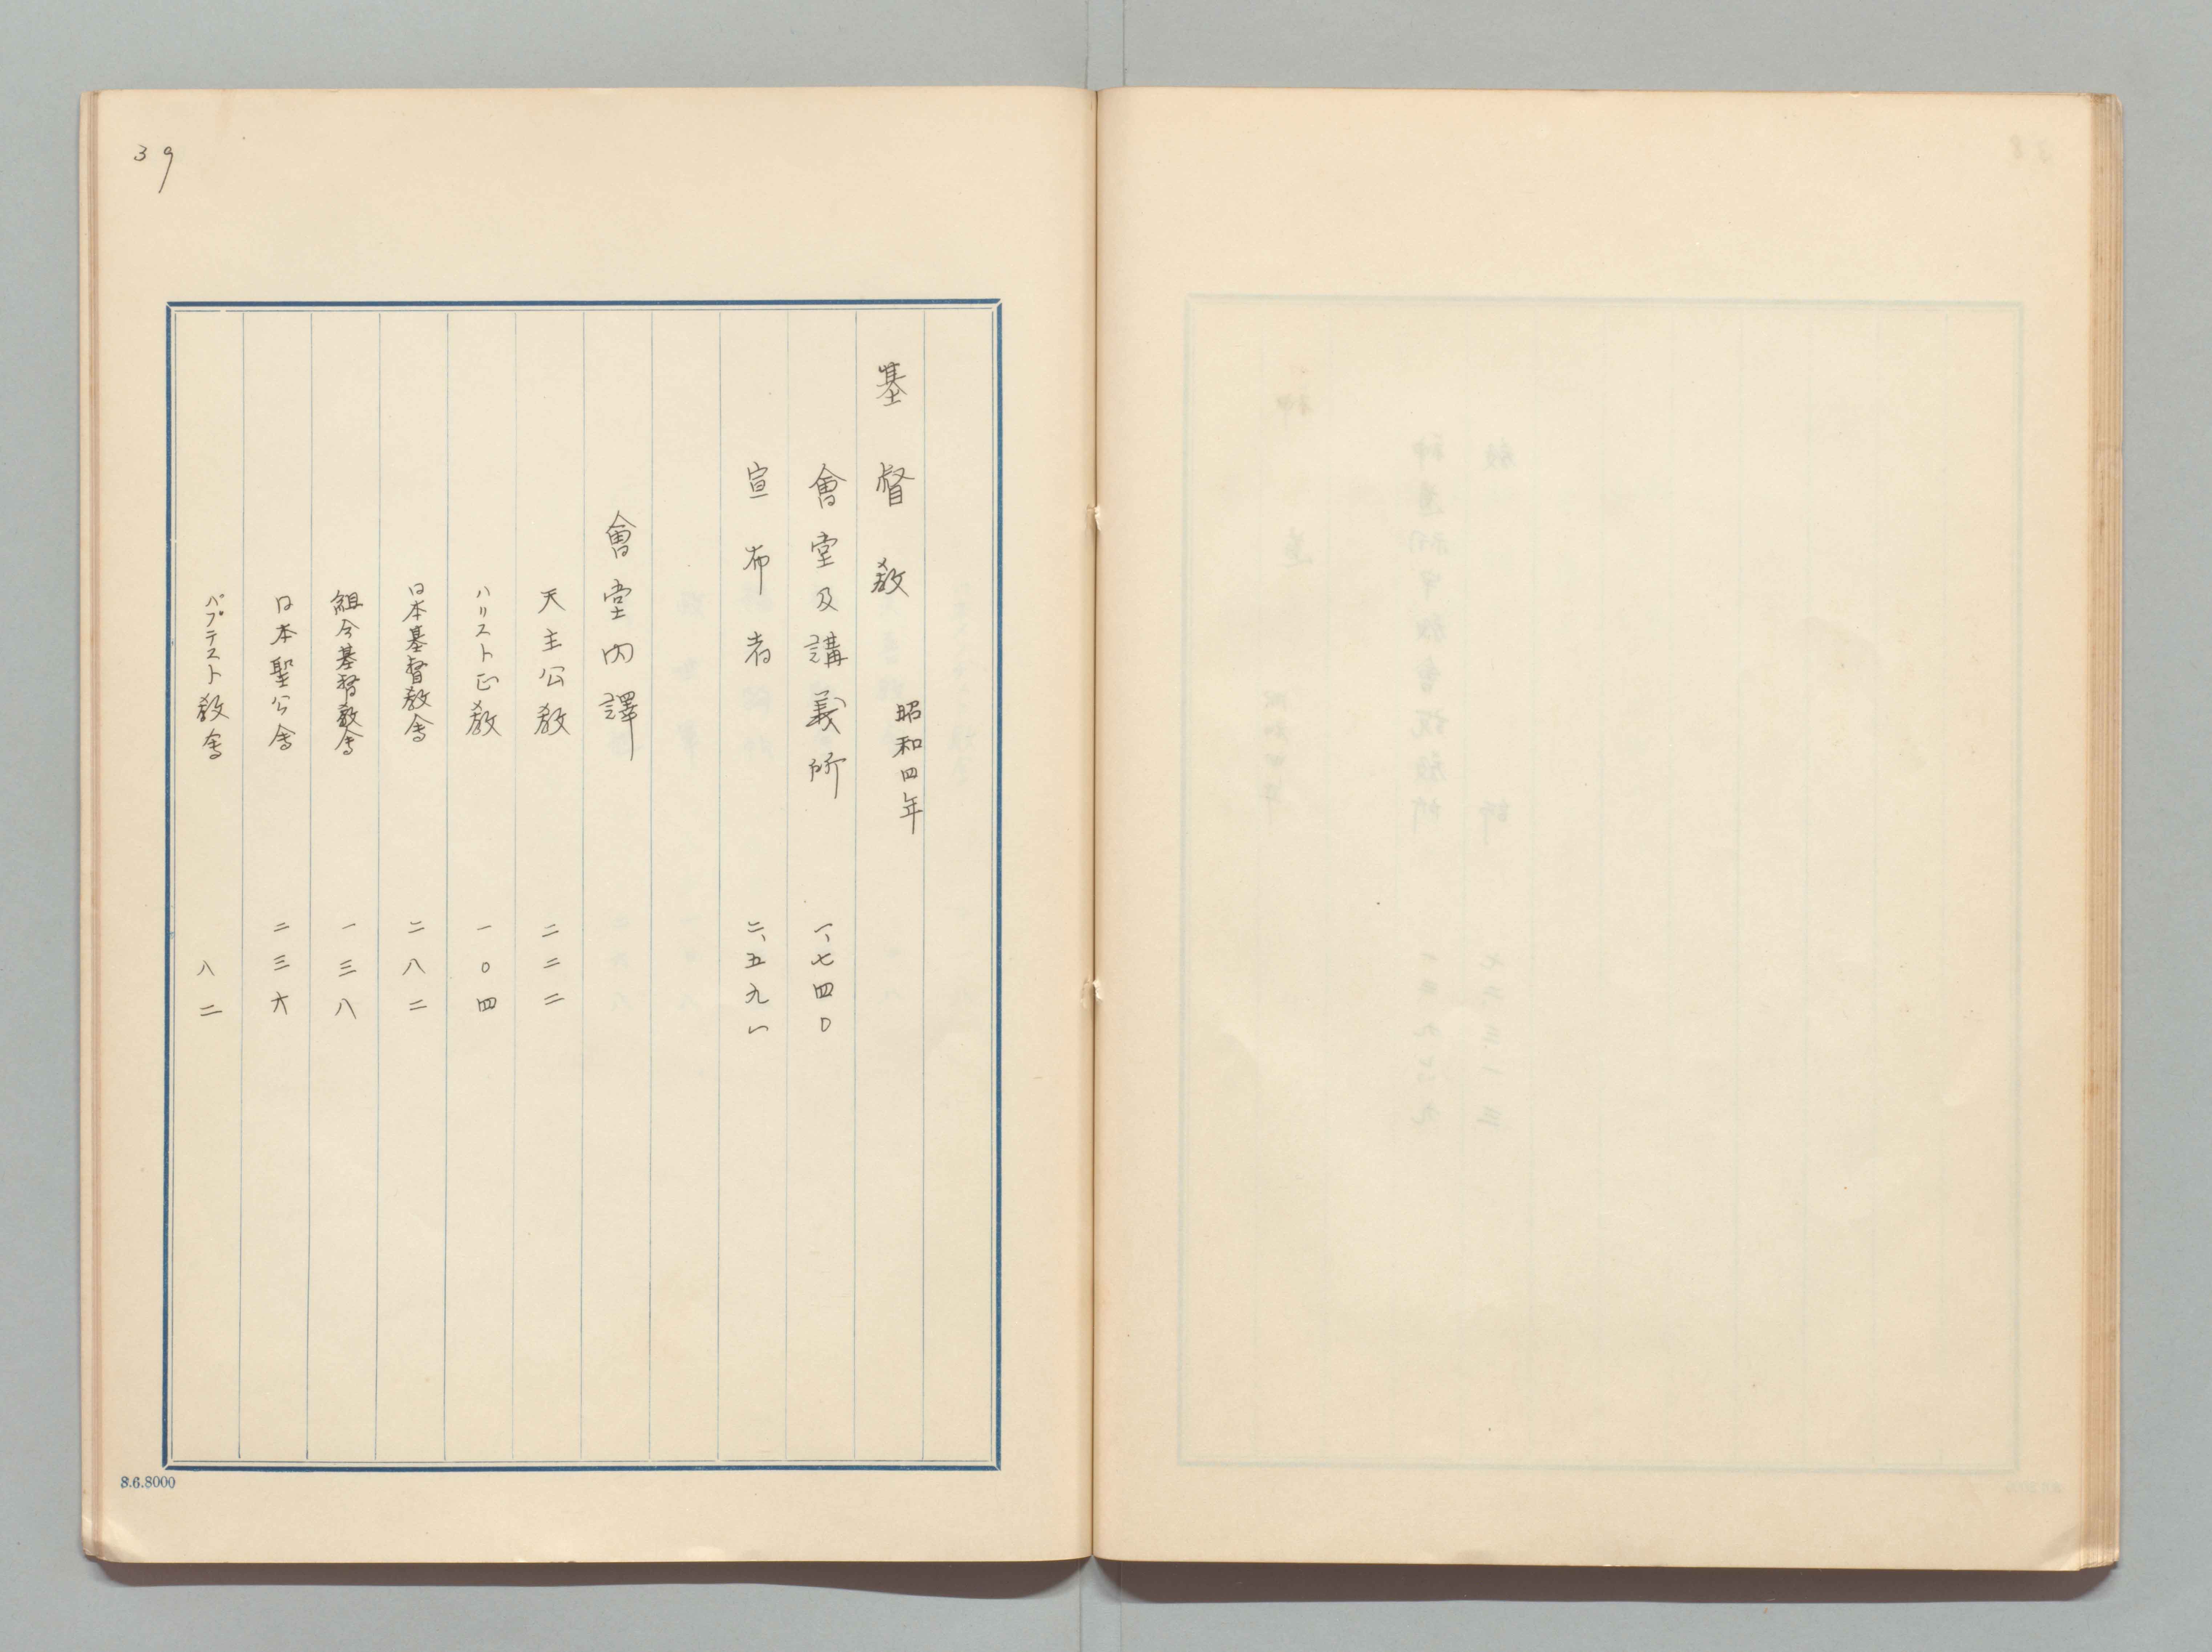 39
基督教 昭和四年
會堂及講義所 一、七四〇
宣布者 二、五九一
會堂内譯
天主公教 二二二
ハリスト正教 一〇四
日本基督教会 二八二
組合基督教会 一三八
日本聖公会 二三六
バプテスト教会 八二
8.6.8000